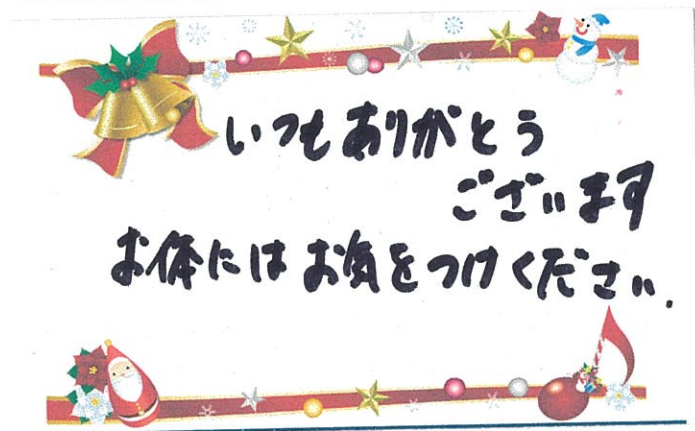 いつもありがとう
ございます
お体にはお気をつけください.